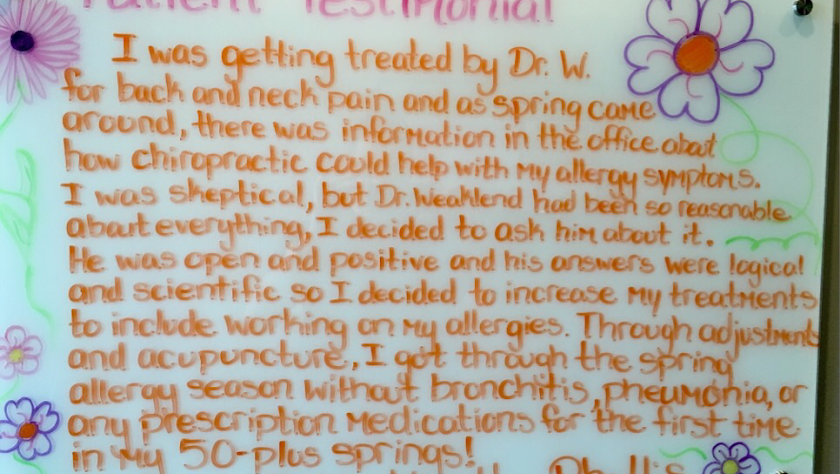 Patient Testimonial
I was getting treated by Dr. W.
for back and neck pain and as spring came
around, there was information in the office about
how chiropractic could help with my allergy symptoms.
I was skeptical, but Dr. Weaklend had been so reasonable
about everything, I decided to ask him about it.
He was open and positive and his answers were logical
and scientific so I decided to increase my treatments
to include working on my allergies. Through adjustments
and acupuncture, I got through the spring
allergy season without bronchitis, pneumonia, or
any prescription medications for the first time
in my 50-plus springs!
Phyllis